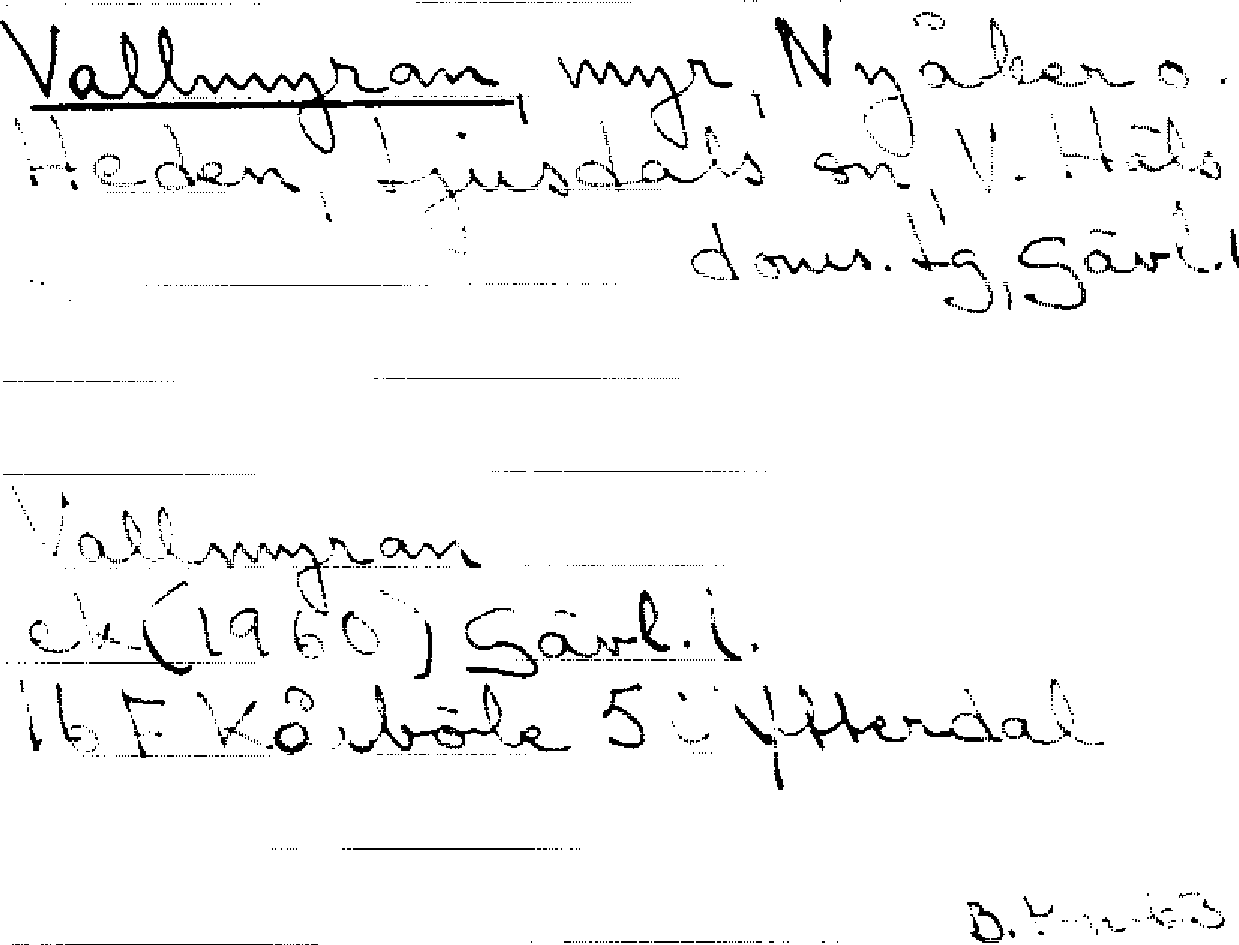 Vallmyran, myr, Nyåker o.
Heden, Ljusdals sn, V. Häls
doms. tg, Gävl.l
Vallmyran
ek (1960) Gävl. l.
16 F Kårböle 5 i Ytterdal
B. 63